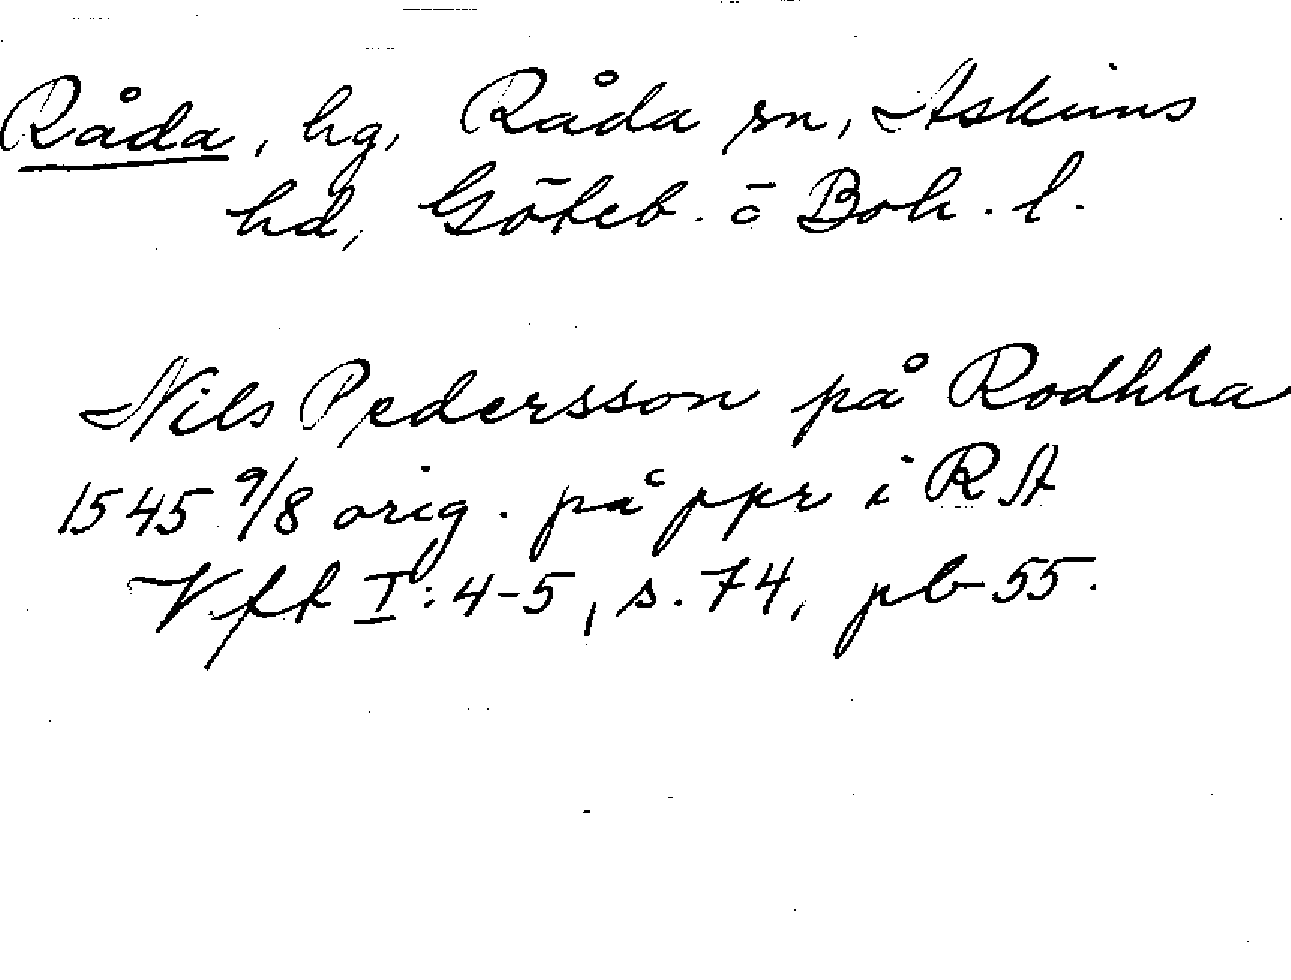 Råda, hg, Råda sn, Askims
hd, Göteb. o Boh. l.
Nils Pedersson på Rodhha
1545 9/8 orig. på ppr i RA
Vfft I:4-5, s. 74, pb 55.